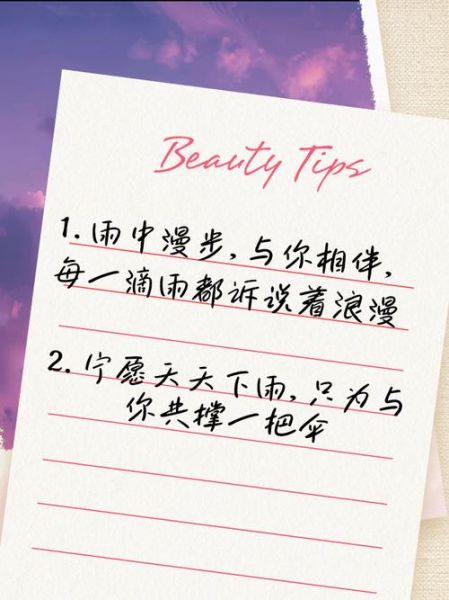 Beauty Tips
1. 雨中漫步, 与你相伴,
每一滴雨都诉说着浪漫
2. 宁愿天天下雨, 只为与
你共撑一把伞